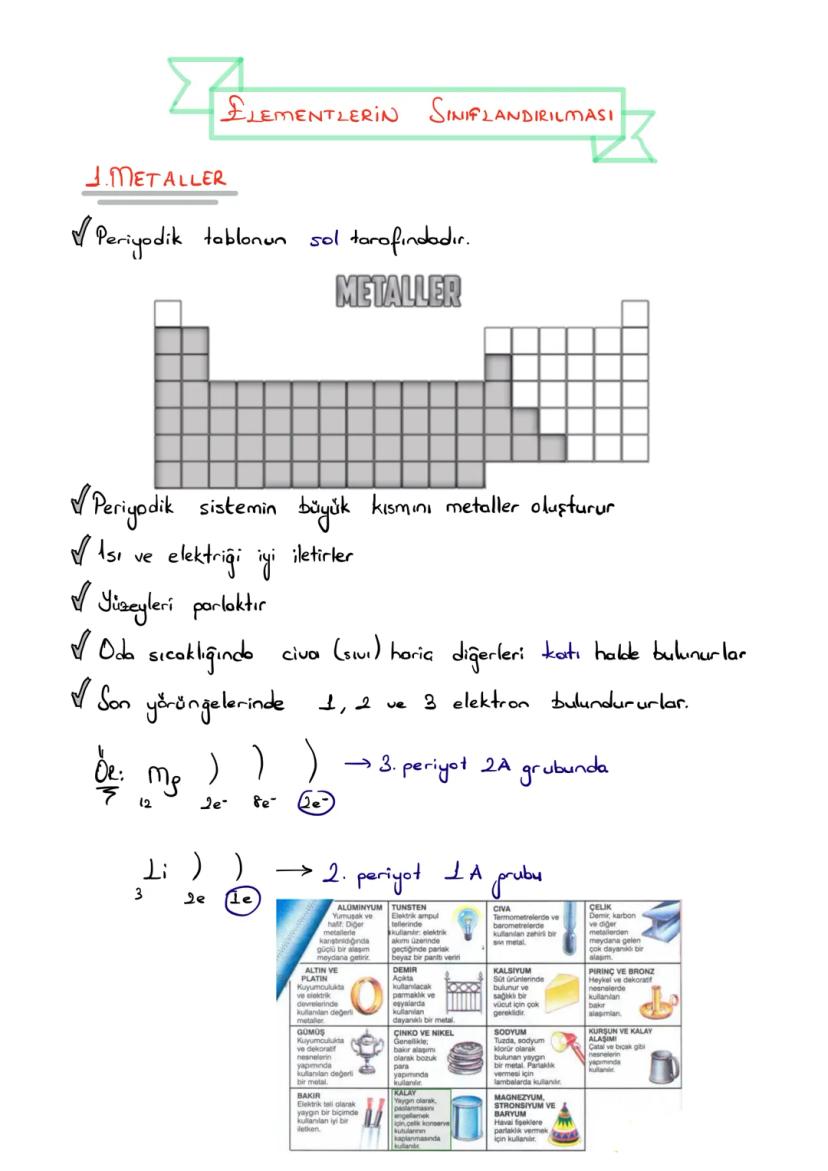 ELEMENTLERİN SINIFLANDIRILMASI
1.METALLER
Periyodik tablonun sol tarafındadır.
METALLER
Periyodik sistemin büyük kısmını metaller oluşturur
Isı ve elektriği iyi iletirler
Yüzeyleri parlaktır
Oda sıcaklığında civa (sıvı) hariç diğerleri katı halde bulunurlar
Son yörüngelerinde 1, 2 ve 3 elektron bulundururlar.
ÖR: Mg ) ) ) → 3. periyot 2A grubunda
12 2e- 8e- 2e-
Li ) ) → 2. periyot 1A grubu
3 2e 1e
ALÜMİNYUM
Yumuşak ve
hafif: Diğer
metallerle
karıştırıldığında
güçlü bir alaşım
meydana getirir.
TUNSTEN
Elektrik ampul
tellerinde
kullanılır: elektrik
akımı üzerinde
geçtiğinde parlak
beyaz bir parıltı verir
CIVA
Termometrelerde ve
barometrelerde
kullanılan zehirli bir
sıvı metal.
ÇELİK
Demir, karbon
ve diğer
metallerden
meydana gelen
çok dayanıklı bir
alaşım.
ALTIN VE
PLATİN
Kuyumculukta
ve elektrik
devrelerinde
kullanılan değerli
metaller.
DEMİR
Açıkta
kullanılacak
parmaklık ve
eşyalarda
kullanılan
dayanıklı bir metal.
KALSİYUM
Süt ürünlerinde
bulunur ve
sağlıklı bir
vücut için çok
gereklidir.
PİRİNÇ VE BRONZ
Heykel ve dekoratif
nesnelerde
kullanılan
bakır
alaşımları.
GÜMÜŞ
Kuyumculukta
ve dekoratif
nesnelerin
yapımında
kullanılan değerli
bir metal.
ÇİNKO VE NİKEL
Genellikle;
bakır alaşımı
olarak bozuk
para
yapımında
kullanılır.
SODYUM
Tuzda, sodyum
klorür olarak
bulunan yaygın
bir metal. Parlaklık
vermesi için
lambalarda kullanılır.
KURŞUN VE KALAY
ALAŞIMI
Çatal ve bıçak gibi
nesnelerin
yapımında
kullanılır.
BAKIR
Elektrik teli olarak
yaygın bir biçimde
kullanılan iyi bir
iletken.
KALAY
Yaygın olarak,
paslanmasını
engellemek
için,çelik konserve
kutularının
kaplanmasında
kullanılır.
MAGNEZYUM,
STRONSİYUM VE
BARYUM
Havai fişeklere
parlaklık vermek
için kullanılır.